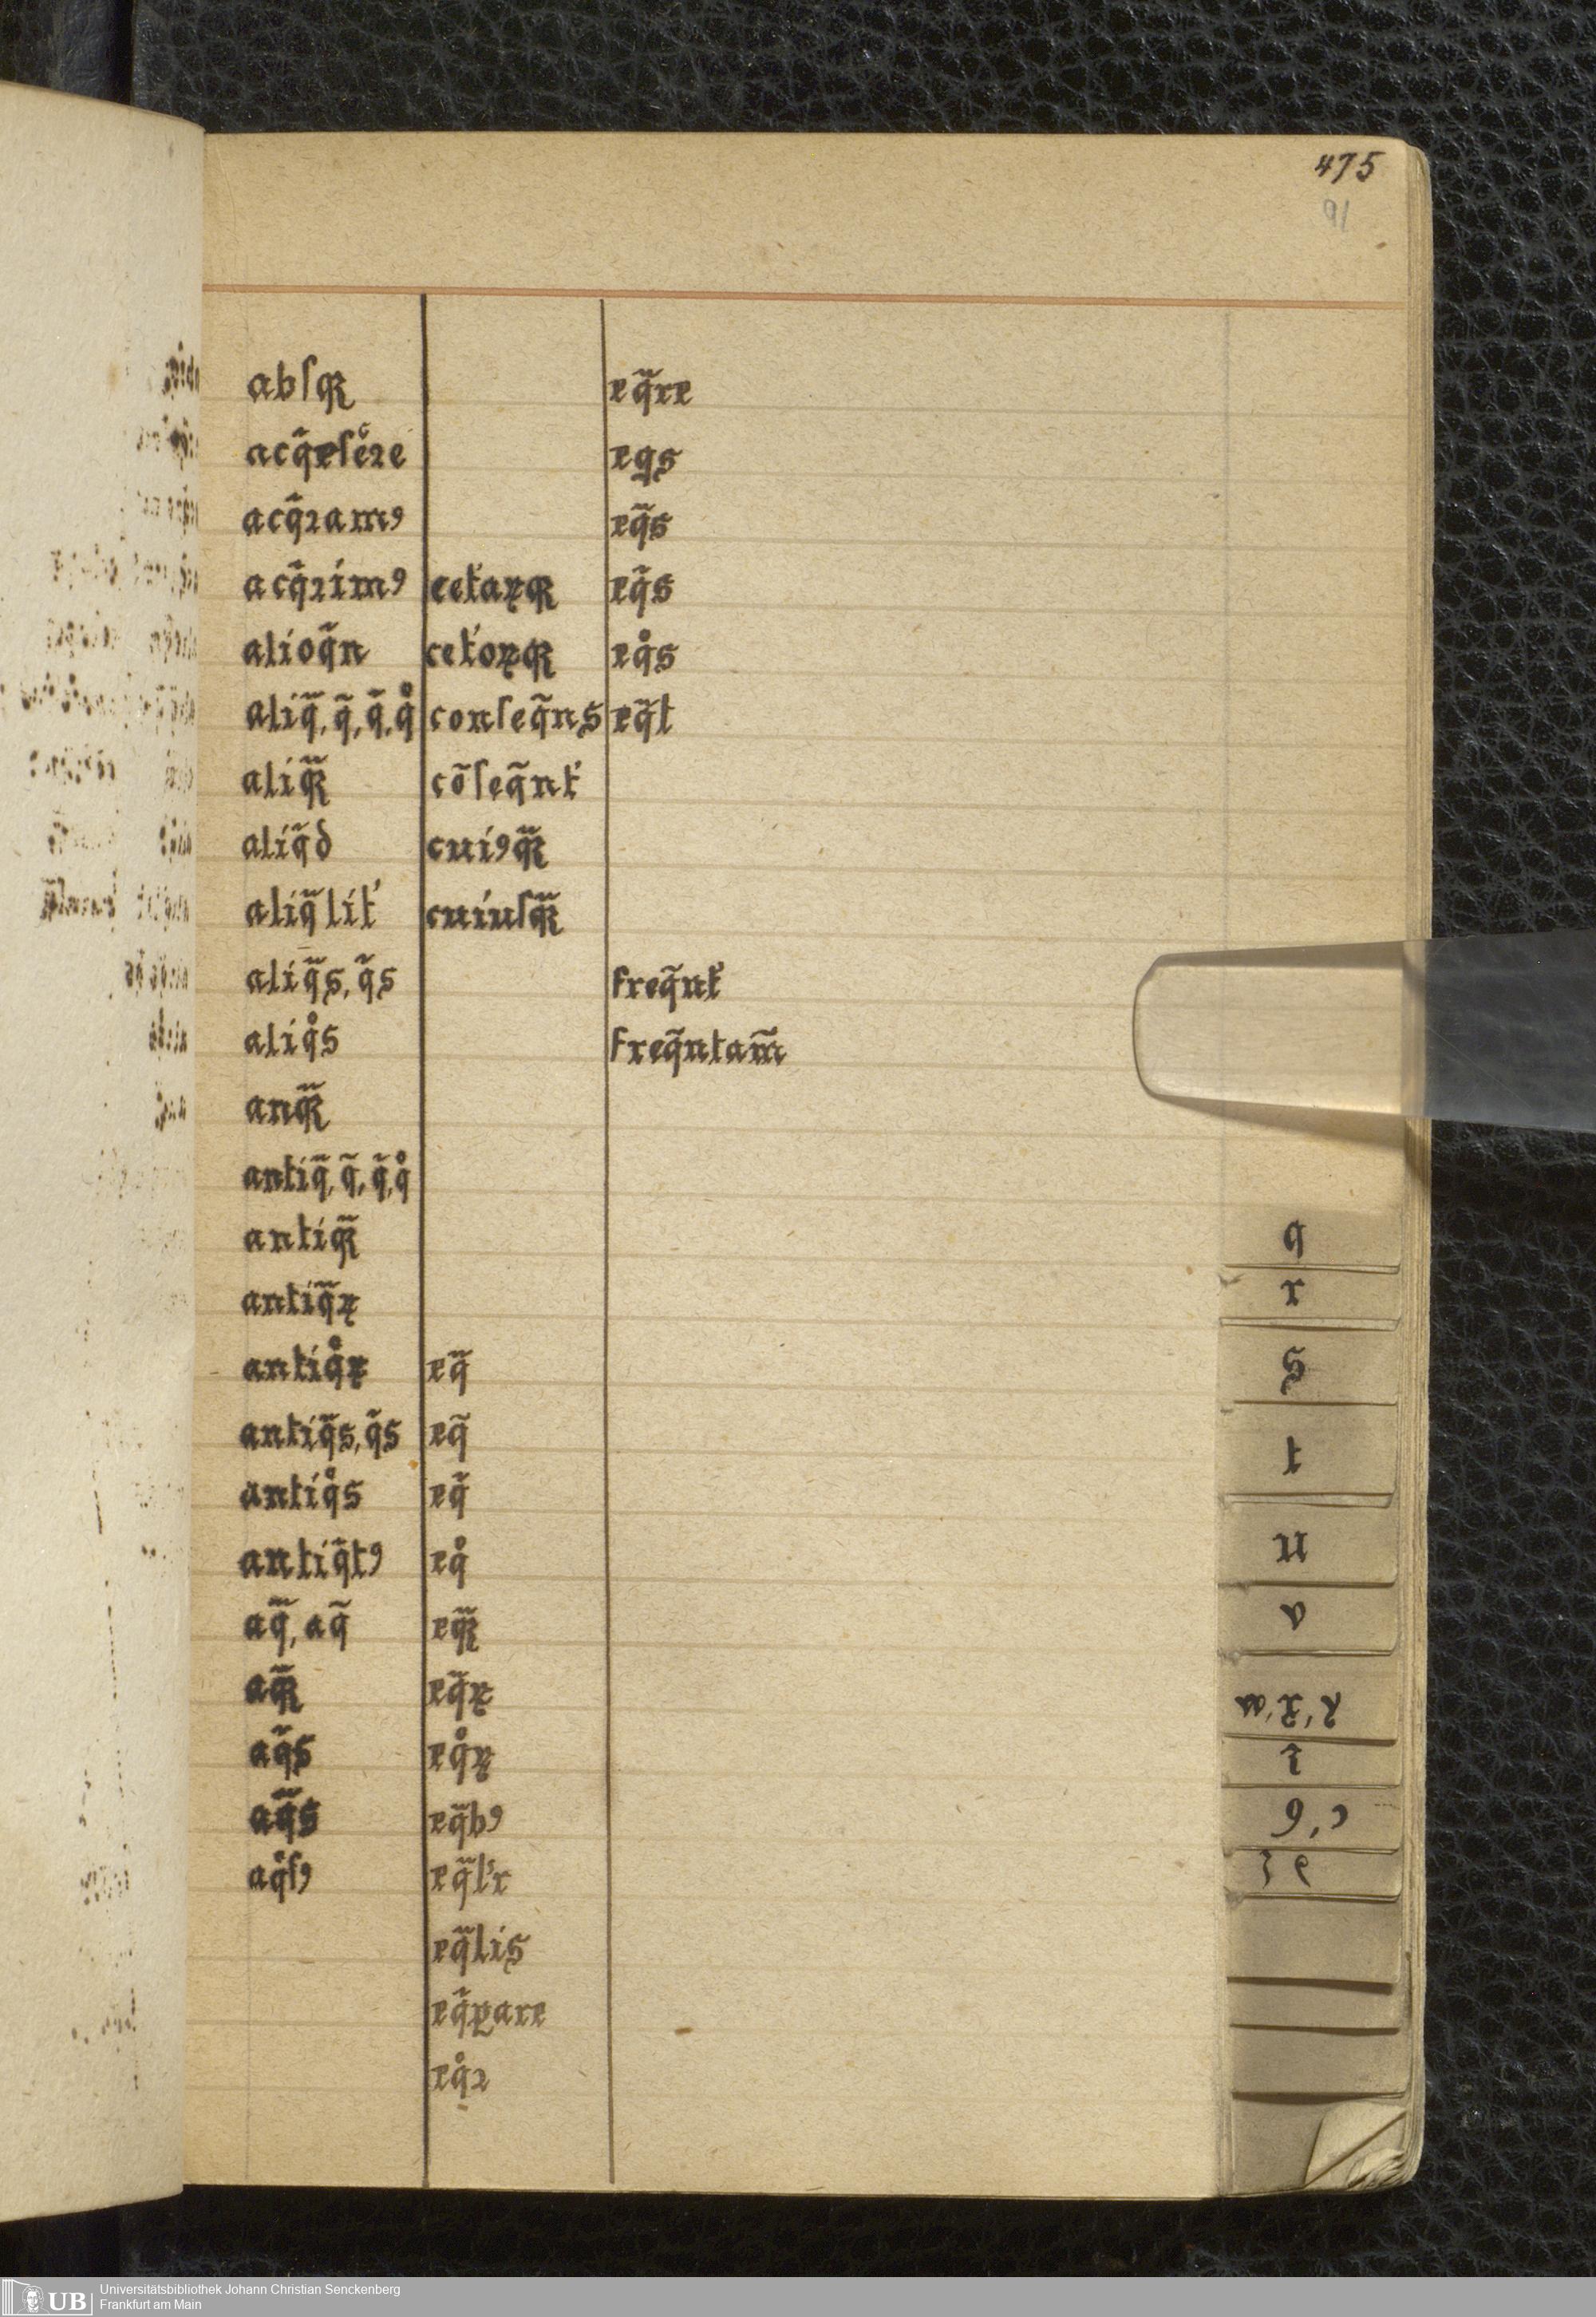 475
91
abſqꝫ
acq̃eſc̃ꝛe
acq̃ꝛamꝰ
acq̃ꝛimꝰ
alioq̃n
aliq̃, q̃, q̃, q̊
aliq̃ꝫ
aliq̃d
aliq̃lit'
aliq̃s, q̃s
aliq̊s
anq̃ꝫ
antiq̃, q̃, q̃, q̊
antiq̃ꝫ
antiq̃ꝝ
antiq̊ꝝ
antiq̃s, q̃s
antiq̊s
antiq̃tꝰ
aq̃, aq̃
aq̃ꝫ
aq̃s
aq̃s
aq̊ſꝰ
cet'aꝝqꝫ
cet'oꝝqꝫ
conſeq̃ns
cõſeq̃nt'
cuiꝰq̃ꝫ
cuiuſq̃ꝫ
eq̃
eq̃
eq̃
eq̊
eq̃ꝫ
eq̃ꝝ
eq̊ꝝ
eq̃bꝰ
eq̃l'r
eq̃lis
eq̃ꝑare
eq̊ꝛ
eq̃re
eqs
eq̃s
eq̃s
eq̊s
eq̃t
freq̃nt'
freq̃ntam̃
q
r
s
t
u
a
Universitätsbibliothek Johann Christian Senckenberg
Frankfurt am Main
UB